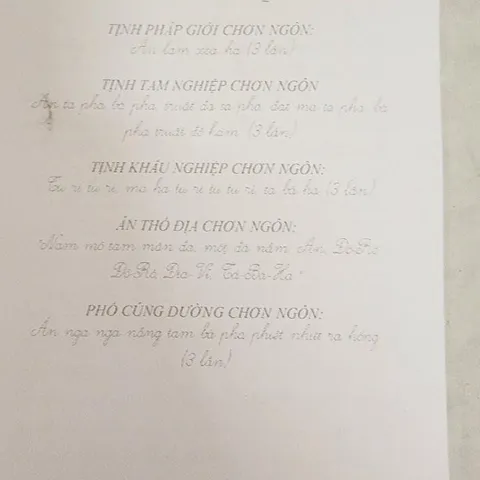 TỊNH PHÁP GIỚI CHƠN NGÔN:
Án lam xóa ha (3 lần)
TỊNH TAM NGHIỆP CHƠN NGÔN
Án ta phạ bà phạ, truật đà ta phạ, đạt mạ ta phạ, bà
phạ truật độ hám (3 lần)
TỊNH KHẨU NGHIỆP CHƠN NGÔN:
Tu rị tu rị, ma ha tu rị tu tu rị, ta bà ha (3 lần)
ÁN THỔ ĐỊA CHƠN NGÔN:
Nam mô tam mãn đa, một đà nẩm, Án, Độ-Rô
Độ-Rô, Địa-Vĩ, Ta-Bà-Ha
PHỔ CÚNG DƯỜNG CHƠN NGÔN:
Án nga nga nẵng tam bà phạ phiệt nhiệt ra hồng
(3 lần)